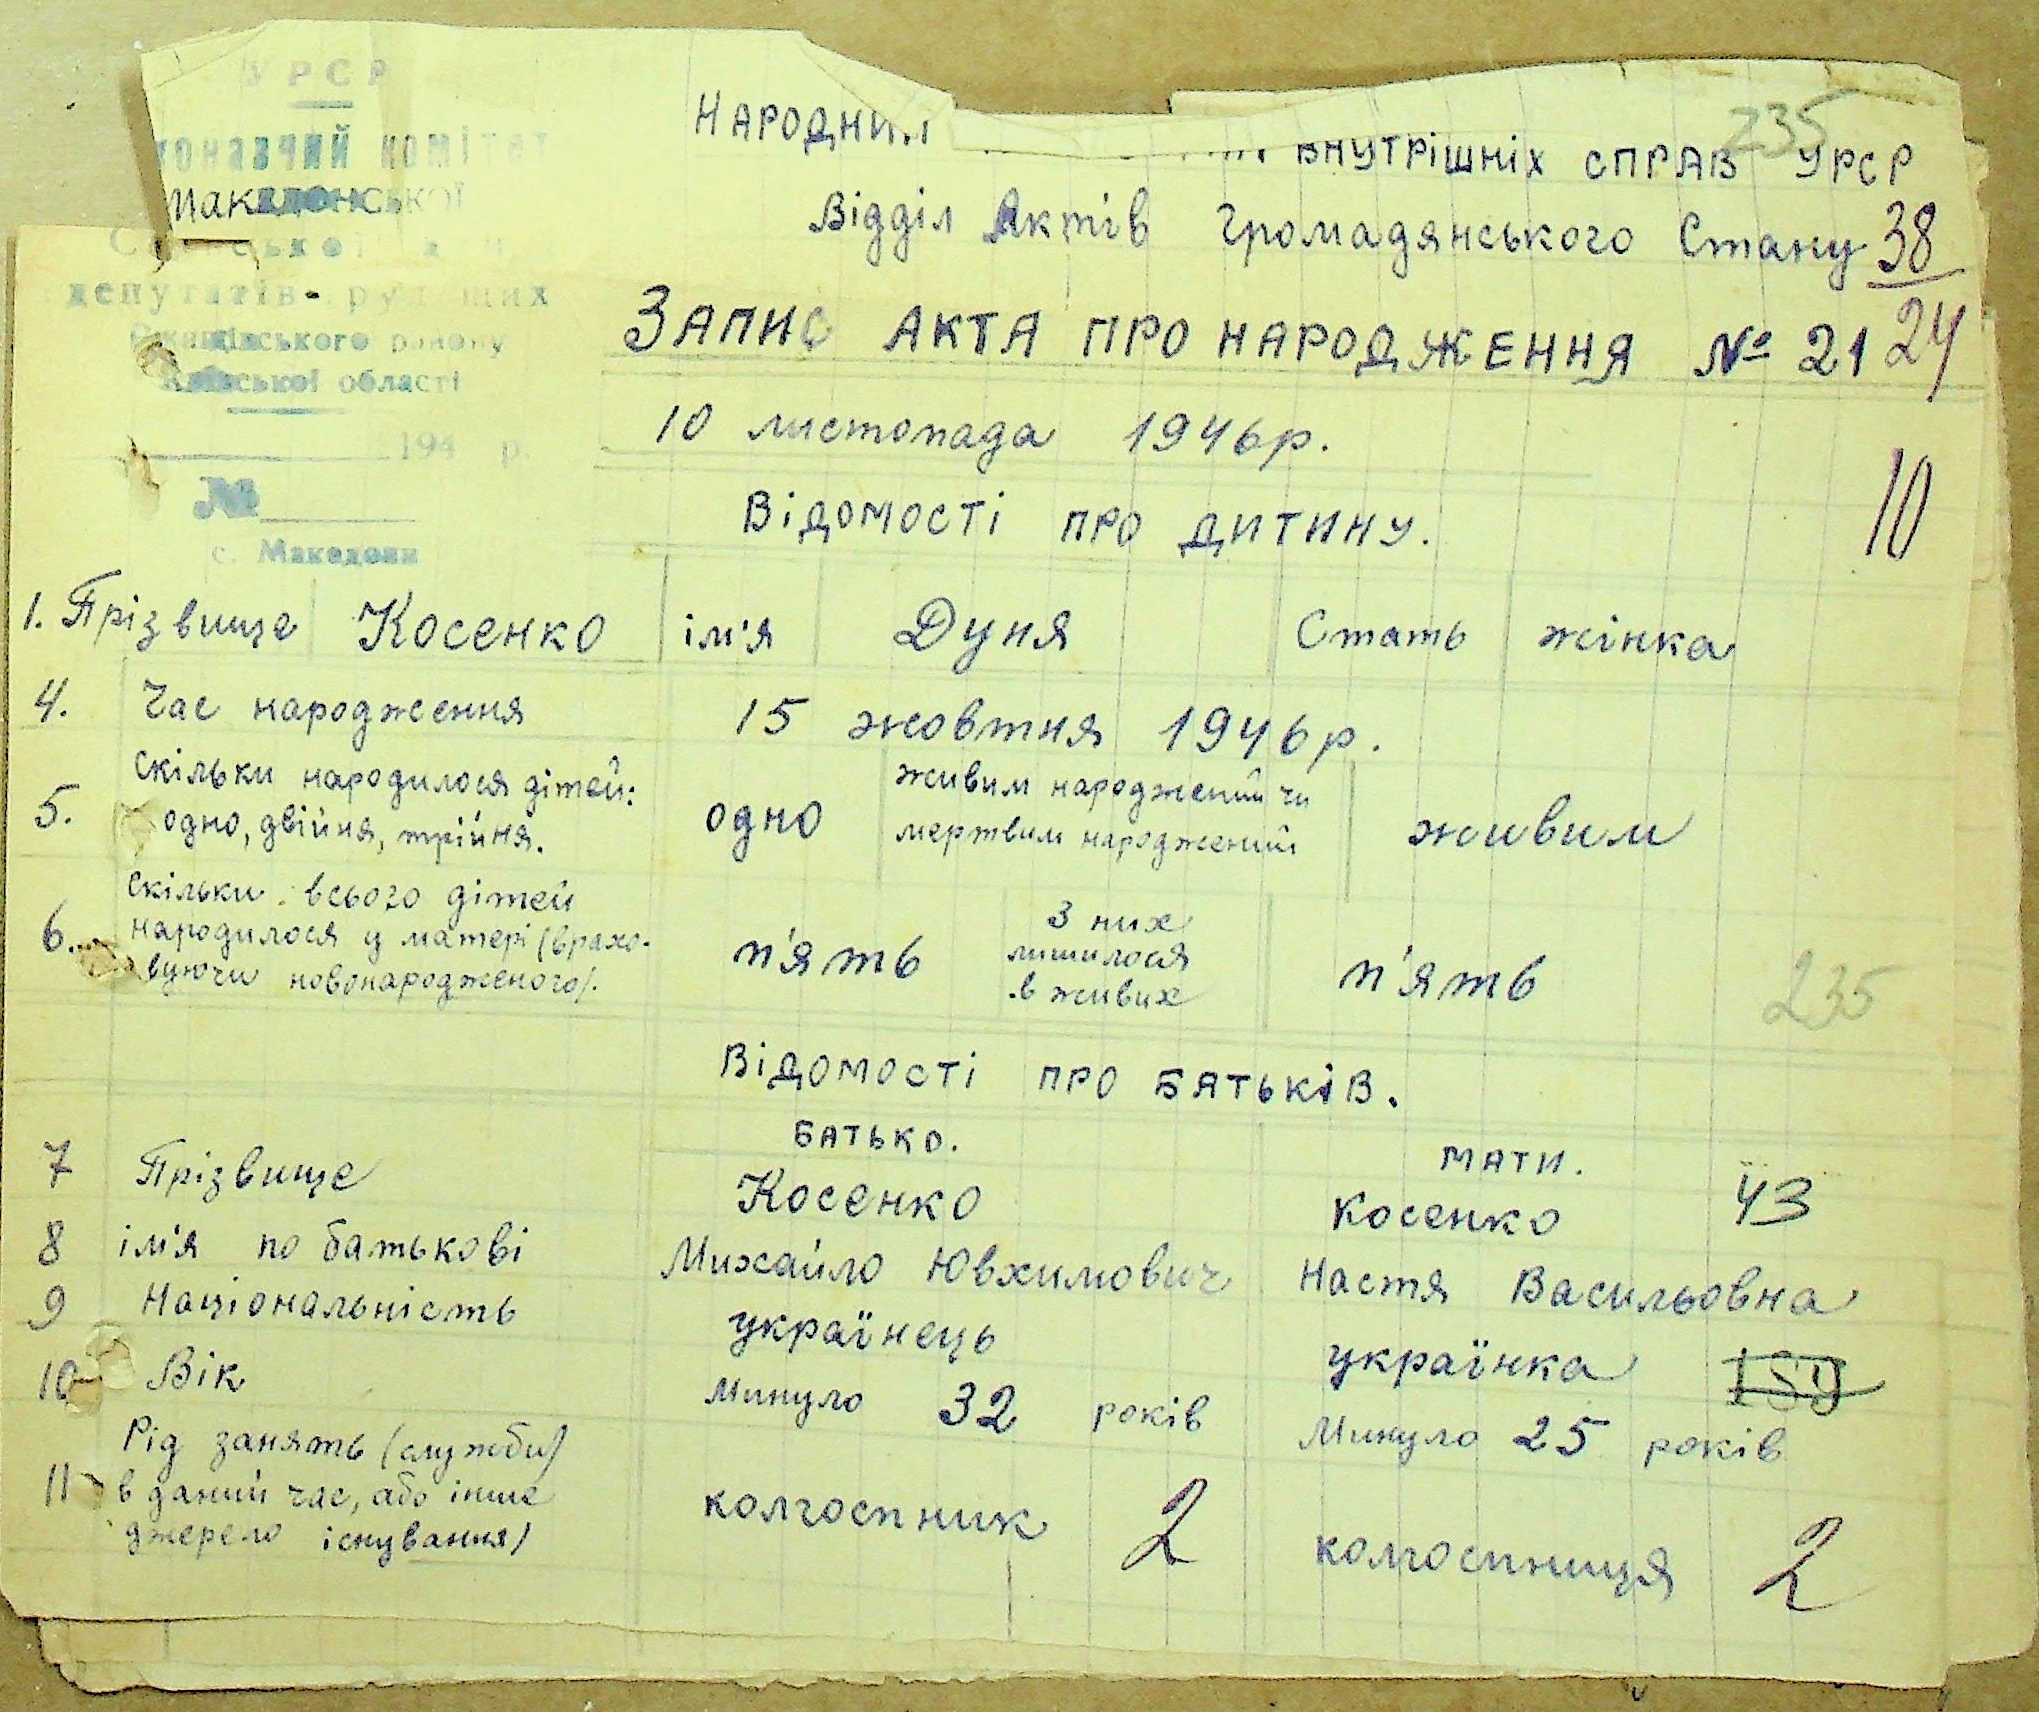 УРСР
комітет
Македонської
депутатів
району
Київської області
194 р.
№
с. Македони
Народний внутрішніх справ УРСР
235
Відділ Актів Громадянського Стану 38
Запис акта про народження № 21 24
10 листопада 1946р.
10
Відомості про дитину.
1. Прізвище Косенко ім'я Дуня Стать жінка
4. Час народження 15 жовтня 1946р.
5. Скільки народилося дітей: одно, двійня, трійня. одно живим народжений чи мертвим народжений живим
6. Скільки всього дітей народилося у матері (врахо-вуючи новонародженого). п'ять З них лишилося в живих п'ять
235
Відомості про батьків.
батько. мати.
7 Прізвище Косенко Косенко 43
8 ім'я по батькові Михайло Ювхимович Настя Васильовна
9 Національність українець українка
10 Вік Минуло 32 років Минуло 25 років
11 Рід занять (служби) в даний час, або інше джерело існування) колгоспник 2 колгоспниця 2